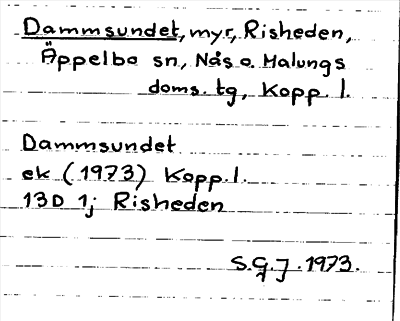 Dammsundet, myr, Risheden,
Äppelbo sn, Nås o. Malungs
doms. tg, Kopp. l.
Dammsundet
ek (1973) Kopp. l.
13D 1j Risheden
S.G.J. 1973.